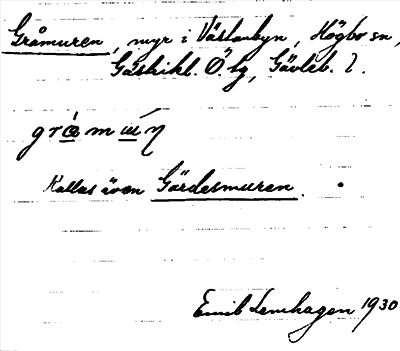 Gråmuren, myr i Västanbyn, Högbo sn,
Gästrikl. Ö. tg, Gävleb. l.
Kallas även Gärdesmuren.
Emil Lenhagen 1930